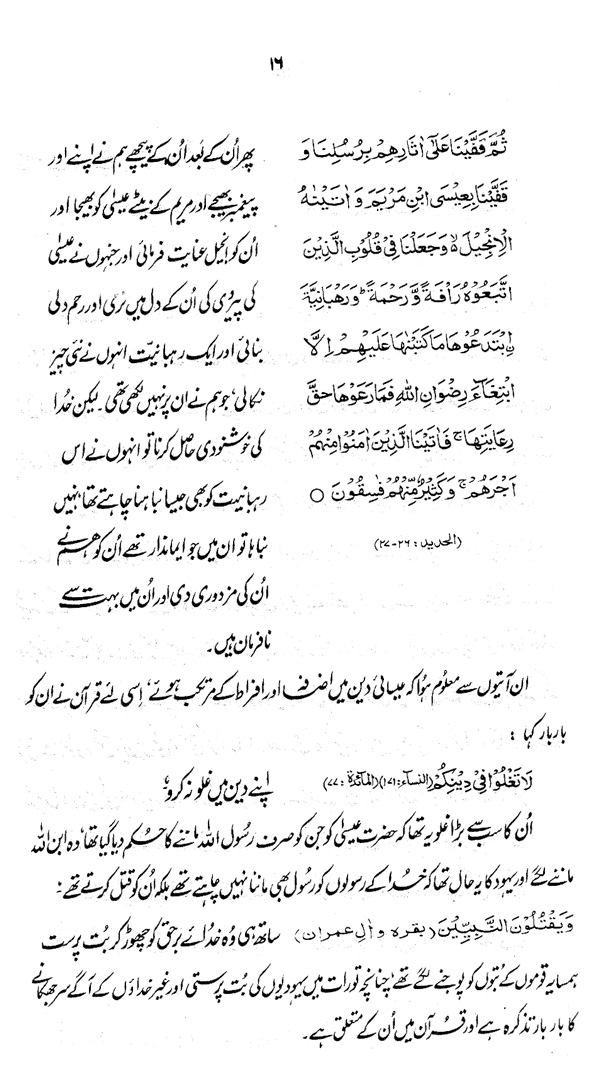 ۱۶
ثُمَّ قَفَّيْنَا عَلٰٓى اٰثَارِهِمْ بِرُسُلِنَا وَ
قَفَّيْنَا بِعِيْسَى ابْنِ مَرْيَمَ وَاٰتَيْنٰهُ
الْاِنْجِيْلَ ۵ۙ وَجَعَلْنَا فِيْ قُلُوْبِ الَّذِيْنَ
اتَّبَعُوْهُ رَاْفَةً وَّرَحْمَةً ؕ وَرَهْبَانِيَّةَ
ۨابْتَدَعُوْهَا مَا كَتَبْنٰهَا عَلَيْهِمْ اِلَّا
ابْتِغَآءَ رِضْوَانِ اللّٰهِ فَمَا رَعَوْهَا حَقَّ
رِعَايَتِهَا ۚ فَاٰتَيْنَا الَّذِيْنَ اٰمَنُوْا مِنْهُمْ
اَجْرَهُمْ ۚ وَكَثِيْرٌ مِّنْهُمْ فٰسِقُوْنَ ○
(الحدید : ۲۶-۲۷)
پھر اُن کے بعد اُن کے پیچھے ہم نے اپنے اور
پیغمبر بھیجے اور مریم کے بیٹے عیسیٰ کو بھیجا اور
اُن کو انجیل عنایت فرمائی اور جنہوں نے عیسیٰ
کی پیروی کی اُن کے دل میں نرمی اور رحم دلی
بنائی اور ایک رہبانیت انہوں نے نئی چیز
نکالی' جو ہم نے ان پر نہیں لکھی تھی۔ لیکن خدا
کی خوشنودی حاصل کرنا تو انہوں نے اس
رہبانیت کو بھی جیسا نباہنا چاہئے تھا' نہیں
نباہا تو ان میں جو ایماندار تھے اُن کو ہم نے
اُن کی مزدوری دی اور اُن میں بہت سے
نافرمان ہیں۔
ان آیتوں سے معلوم ہوا کہ عیسائی دین میں اضافہ اور افراط کے مرتکب ہوئے' اِسی لئے قرآن نے ان کو
بار بار کہا :
لَا تَغْلُوْا فِيْ دِيْنِكُمْ (النساء: ۱۷۱) (المائدۃ: ۷۷) اپنے دین میں غلو نہ کرو'
اُن کا سب سے بڑا غلو یہ تھا کہ حضرت عیسیٰ کو جن کو صرف رسول اللہ ماننے کا حکم دیا گیا تھا' وہ ابن اللہ
ماننے لگے اور یہود کا یہ حال تھا کہ خدا کے رسولوں کو رسول بھی ماننا نہیں چاہتے تھے بلکہ اُن کو قتل کرتے تھے :
وَيَقْتُلُوْنَ النَّبِيِّيْنَ (بقرہ و اٰل عمران) ساتھ ہی وُہ خدائے برحق کو چھوڑ کر بُت پرست
ہمسایہ قوموں کے بُتوں کو پوجنے لگے تھے' چنانچہ تورات میں یہودیوں کی بُت پرستی اور غیر خداؤں کے آگے سر جھکانے
کا بار بار تذکرہ ہے اور قرآن میں اُن کے متعلق ہے۔